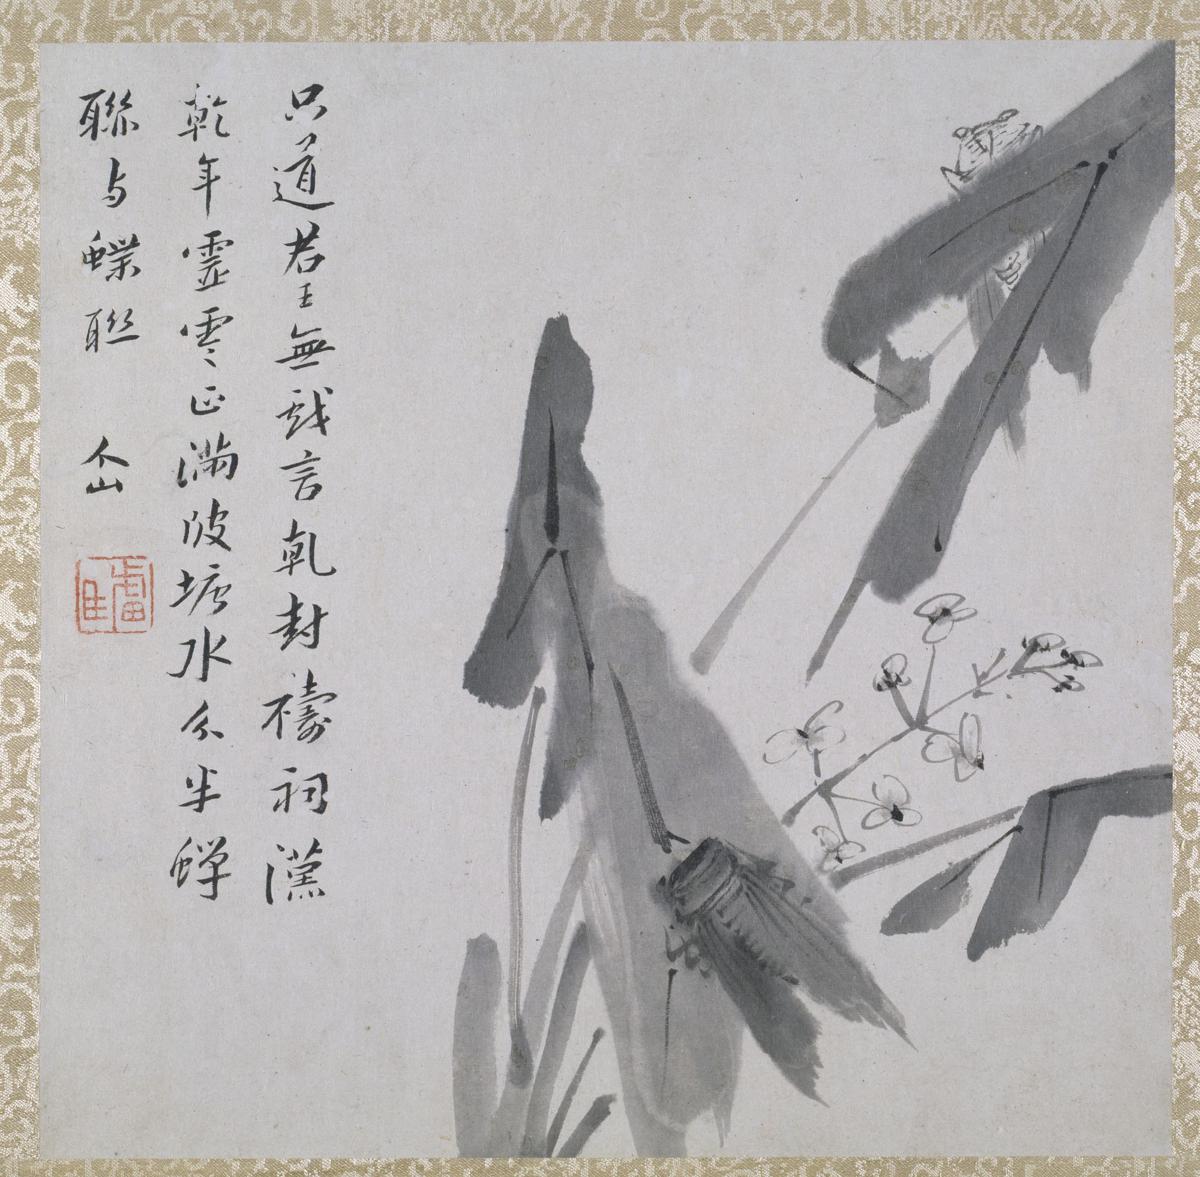 只道君王無戲言乾封禱祠漢
乾年靈雩正滿陂塘水分半蟬
聯与蝶聨
个山